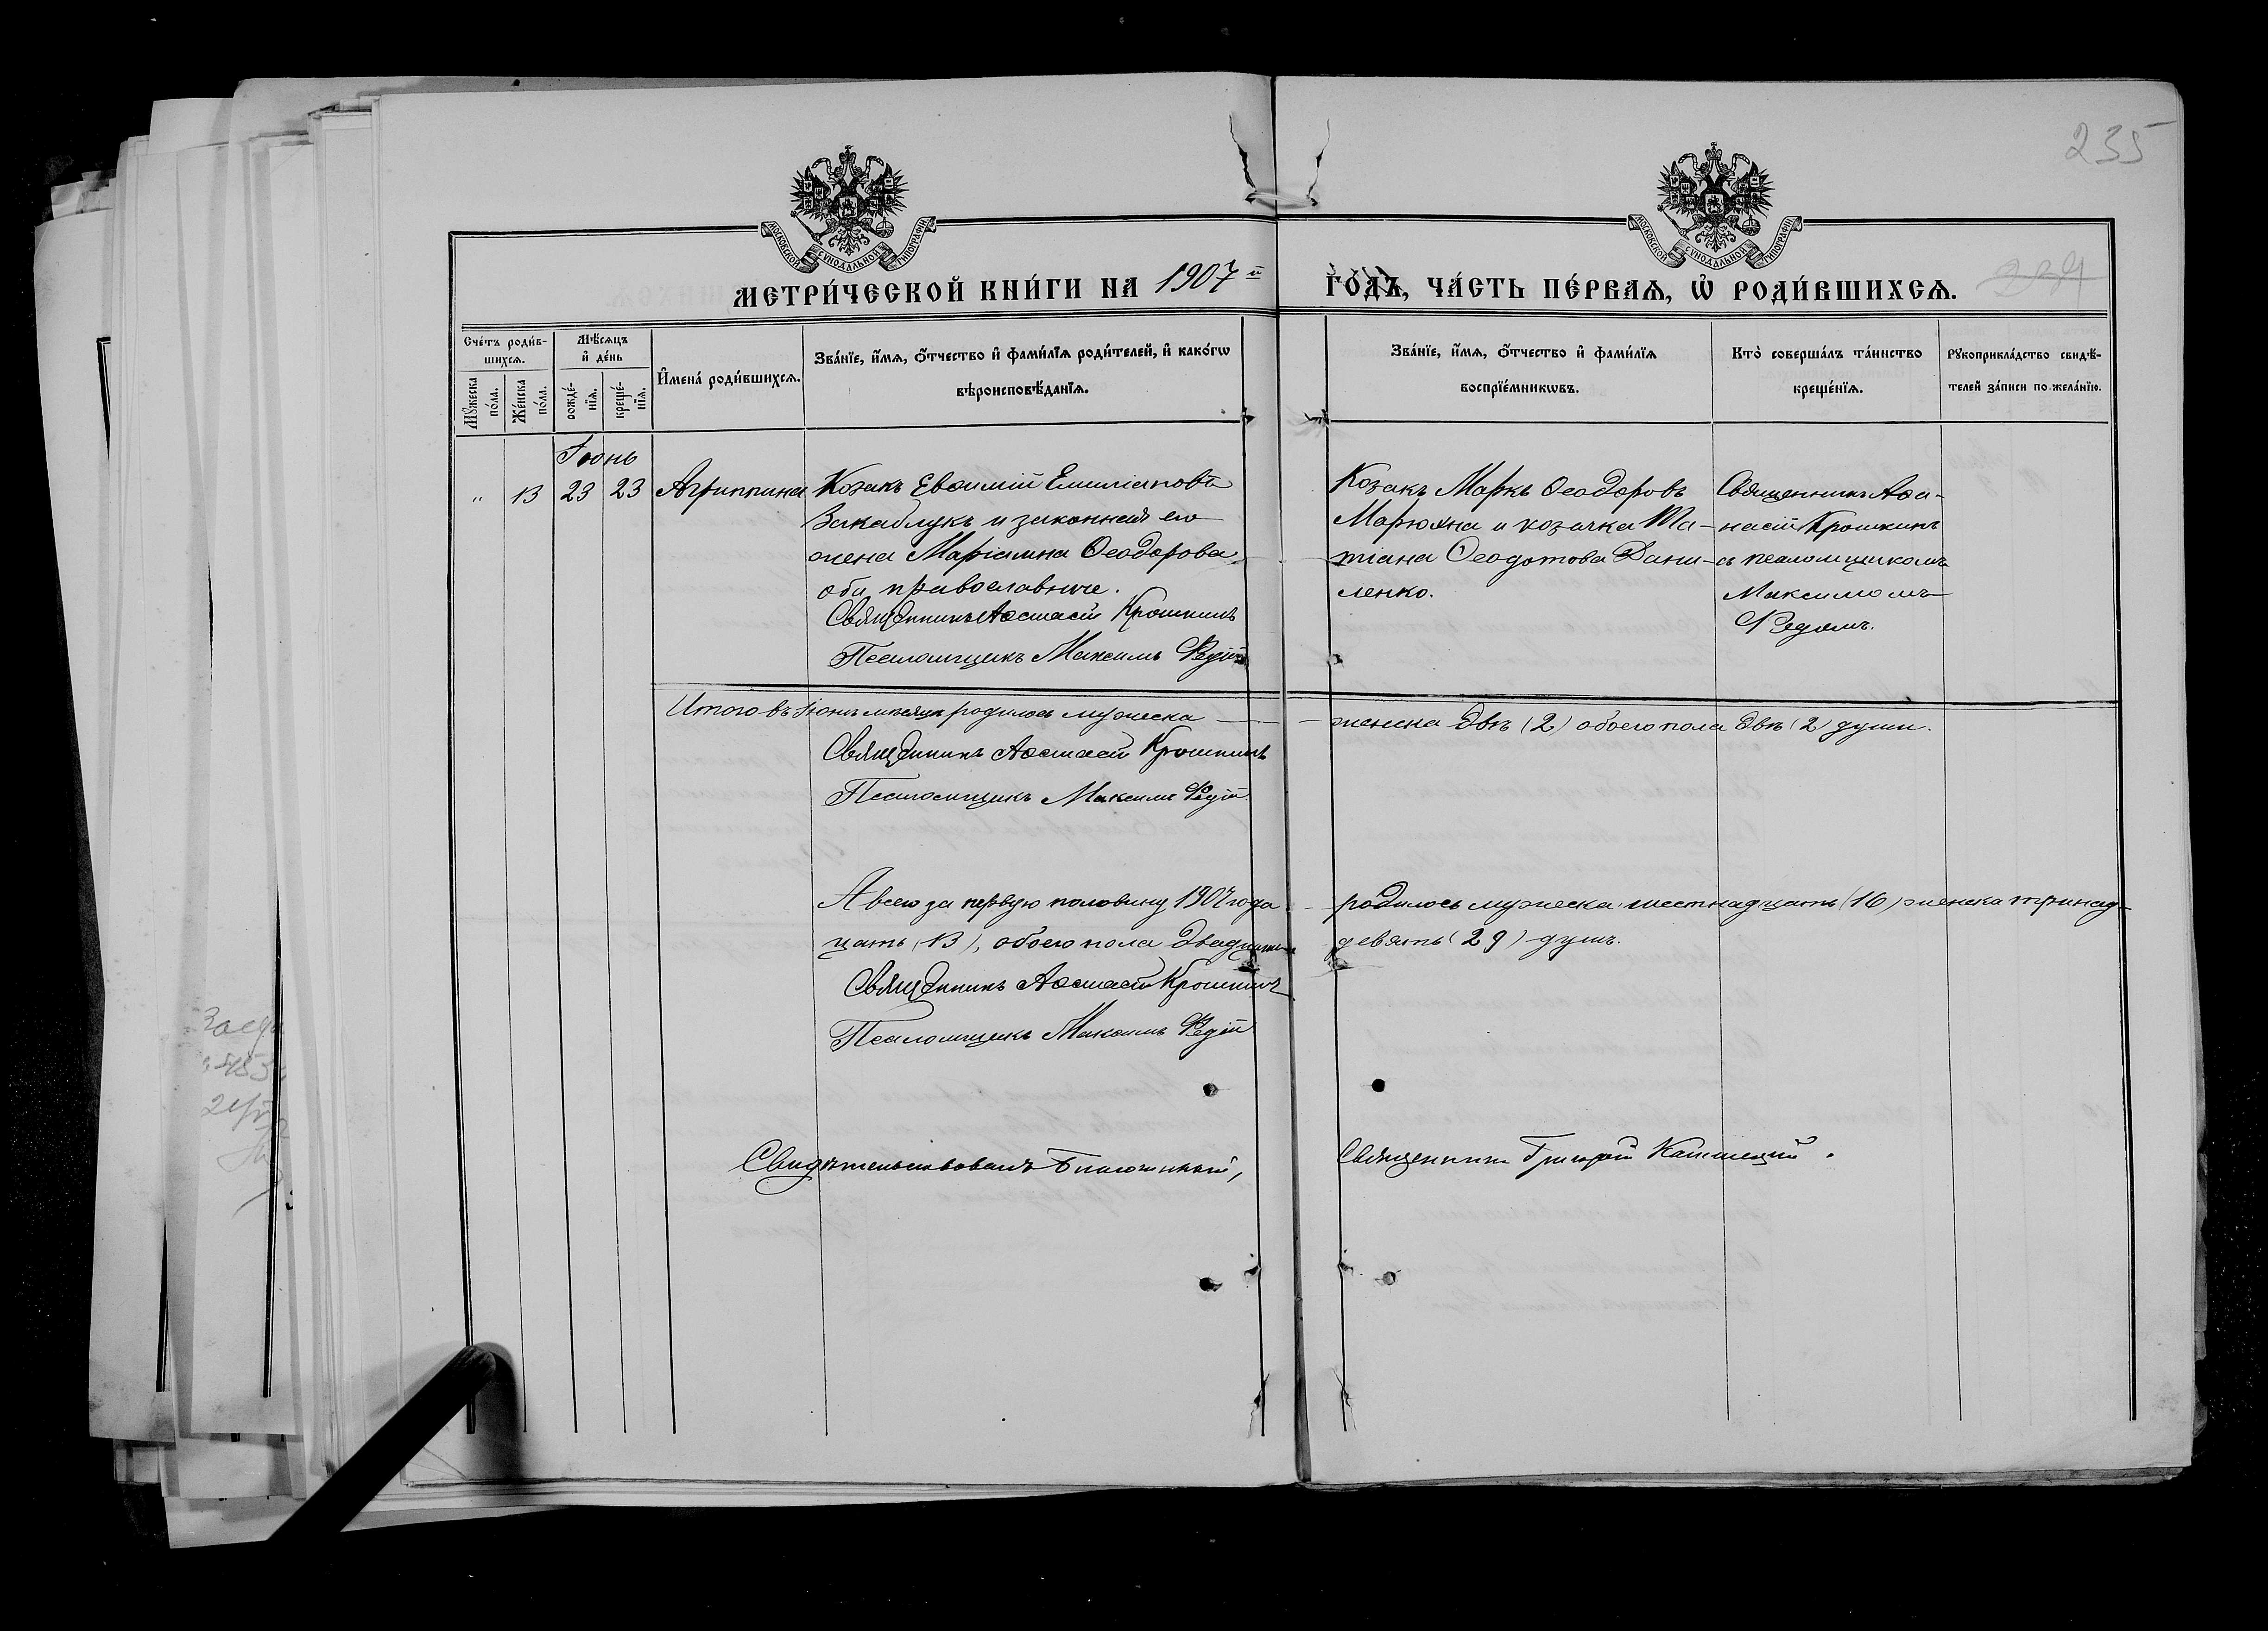 235
МОСКОВСКОЙ СѴНОДАЛЬНОЙ ТИПОГРАФІИ
МОСКОВСКОЙ СѴНОДАЛЬНОЙ ТИПОГРАФІИ
МЕТРИ́ЧЕСКОЙ КНИ́ГИ НА 1907й ГО́ДЪ, ЧА́СТЬ ПЕ́РВАѦ, Ѡ҆ РОДИ́ВШИХСѦ.
Сче́тъ роди́в-
шихсѧ.
Мꙋ́жеска по́ла.
Же́нска по́ла.
Мѣ́сѧцъ
и҆ де́нь
рожде́-
нїѧ.
креще́-
нїѧ.
И҆мена̀ роди́вшихсѧ.
Зва́нїе, и҆́мѧ, ѻ҆́тчество и҆ фами́лїѧ роди́телей, и҆ како́гѡ
вѣроисповѣ́данїѧ.
Зва́нїе, и҆́мѧ, ѻ҆́тчество и҆ фами́лїѧ
воспрїе́мникѡвъ.
Кто̀ соверша́лъ та́инство
креще́нїѧ.
Рꙋкоприкла́дство свидѣ́-
телей за́писи по жела́нїю.
Іюнь
" 13 23 23 Агриппина
Козакъ Евѳимій Емиліановъ
Закаблукъ и законная его
жена Маріамна Ѳеодорова
оба православные.
Священникъ Аѳанасій Крошкинъ
Псаломщикъ Максимъ
Козакъ Маркъ Ѳеодоровъ
Марюхна и козачка Та-
тіана Ѳеодотова Дани-
ленко.
Священникъ Аѳа-
насій Крошкинъ
съ псаломщикомъ
Максимомъ
Итого въ Іюнѣ мѣсяцѣ родилось мужеска — женска двѣ (2) обоего пола двѣ (2) души.
Священникъ Аѳанасій Крошкинъ
Псаломщикъ Максимъ
А всего за первую половину 1907 года родилось мужеска шестнадцать (16) женска тринад-
цать (13), обоего пола двадцать девять (29) душъ.
Священникъ Аѳанасій Крошкинъ
Псаломщикъ Максимъ
Свидѣтельствовалъ Благочинный, Священникъ Григорій